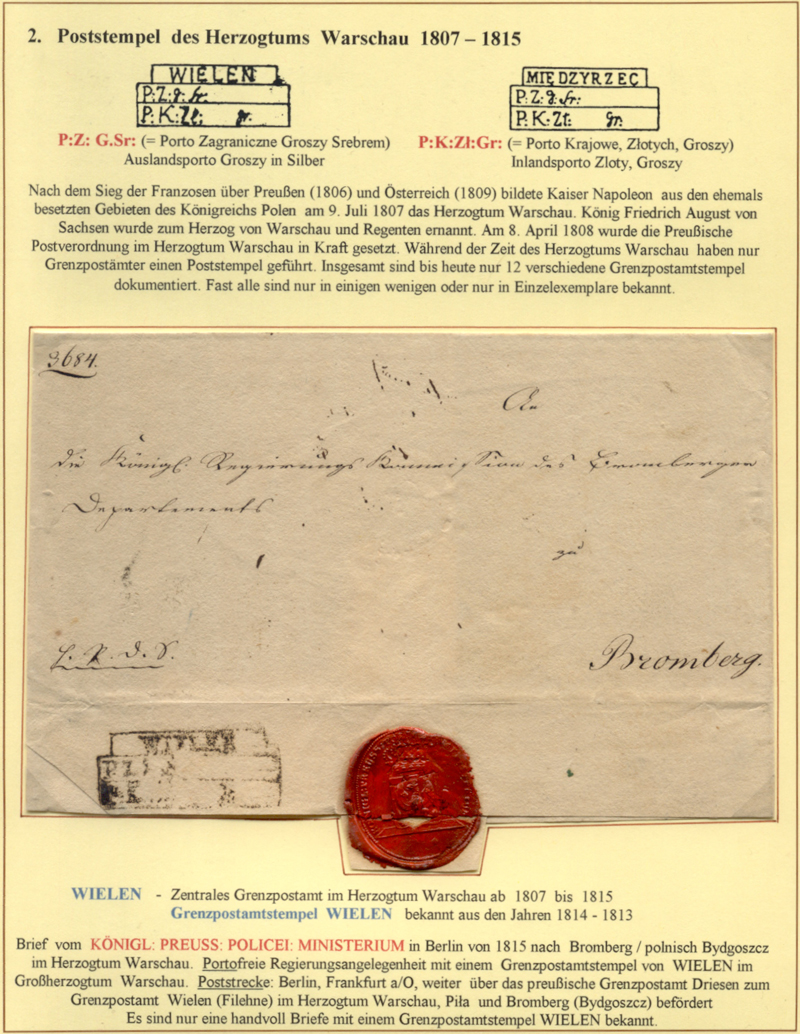 2. Poststempel des Herzogtums Warschau 1807 – 1815
WIELEN
P:Z: g. fr.
P.K:Zł: gr.
MIĘDZYRZEC
P:Z: g. fr:
P:K:Zł: gr.
P:Z: G.Sr: (= Porto Zagraniczne Groszy Srebrem)
Auslandsporto Groszy in Silber
P:K:Zł:Gr: (= Porto Krajowe, Złotych, Groszy)
Inlandsporto Zloty, Groszy
Nach dem Sieg der Franzosen über Preußen (1806) und Österreich (1809) bildete Kaiser Napoleon aus den ehemals
besetzten Gebieten des Königreichs Polen am 9. Juli 1807 das Herzogtum Warschau. König Friedrich August von
Sachsen wurde zum Herzog von Warschau und Regenten ernannt. Am 8. April 1808 wurde die Preußische
Postverordnung im Herzogtum Warschau in Kraft gesetzt. Während der Zeit des Herzogtums Warschau haben nur
Grenzpostämter einen Poststempel geführt. Insgesamt sind bis heute nur 12 verschiedene Grenzpostamtstempel
dokumentiert. Fast alle sind nur in einigen wenigen oder nur in Einzelexemplare bekannt.
3684.
An
die Königl. Regierungs Kommission des Bromberger
Departements
zu
Bromberg.
WIELEN
P.Z
WIELEN - Zentrales Grenzpostamt im Herzogtum Warschau ab 1807 bis 1815
Grenzpostamtstempel WIELEN bekannt aus den Jahren 1814 - 1813
Brief vom KÖNIGL: PREUSS: POLICEI: MINISTERIUM in Berlin von 1815 nach Bromberg / polnisch Bydgoszcz
im Herzogtum Warschau. Portofreie Regierungsangelegenheit mit einem Grenzpostamtstempel von WIELEN im
Großherzogtum Warschau. Poststrecke: Berlin, Frankfurt a/O, weiter über das preußische Grenzpostamt Driesen zum
Grenzpostamt Wielen (Filehne) im Herzogtum Warschau, Piła und Bromberg (Bydgoszcz) befördert
Es sind nur eine handvoll Briefe mit einem Grenzpostamtstempel WIELEN bekannt.